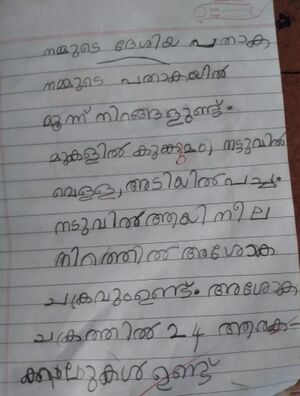 നമ്മുടെ ദേശിയ പതാക
നമ്മുടെ പതാകയിൽ
മൂന്ന് നിറങ്ങളുണ്ട്.
മുകളിൽ കുങ്കുമം, നടുവിൽ
വെള്ള, അടിയിൽ പച്ച.
നടുവിൽ ആയി നീല
നിറത്തിൽ അശോക
ചക്രവും ഉണ്ട്. അശോക
ചക്രത്തിൽ 24 ആരക്
കാലുകൾ ഉണ്ട്